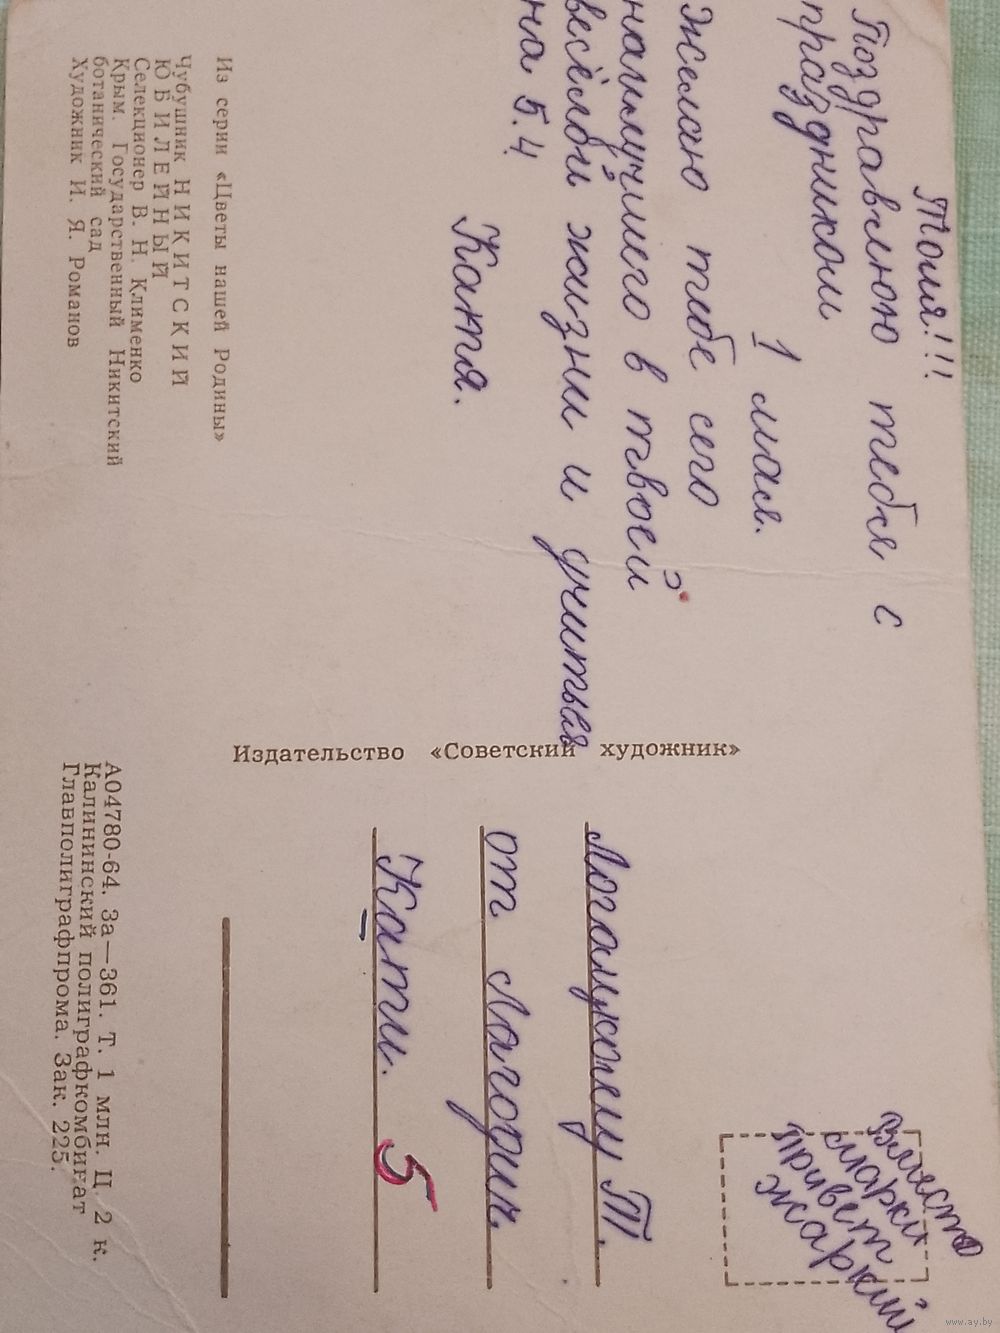 Толя!!!
Поздравлюю тебя с
праздником
1 мая.
Желаю тебе сего
наилучшего в твоей
весёлой жизни и учиться
на 5.4
Катя.
Из серии «Цветы нашей Родины»
Чубушник НИКИТСКИЙ
ЮБИЛЕЙНЫЙ
Селекционер В. Н. Клименко
Крым. Государственный Никитский
ботанический сад
Художник И. Я. Романов
Издательство «Советский художник»
Вместо
марки
привет
жаркий
Т.
от
Кати.
5
А04780-64. За—361. Т. 1 млн. Ц. 2 к.
Калининский полиграфкомбинат
Главполиграфпрома. Зак. 225.
www.ay.by